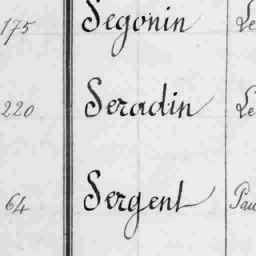 175 Segonin Le
220 Seradin Le
64 Sergent Pau